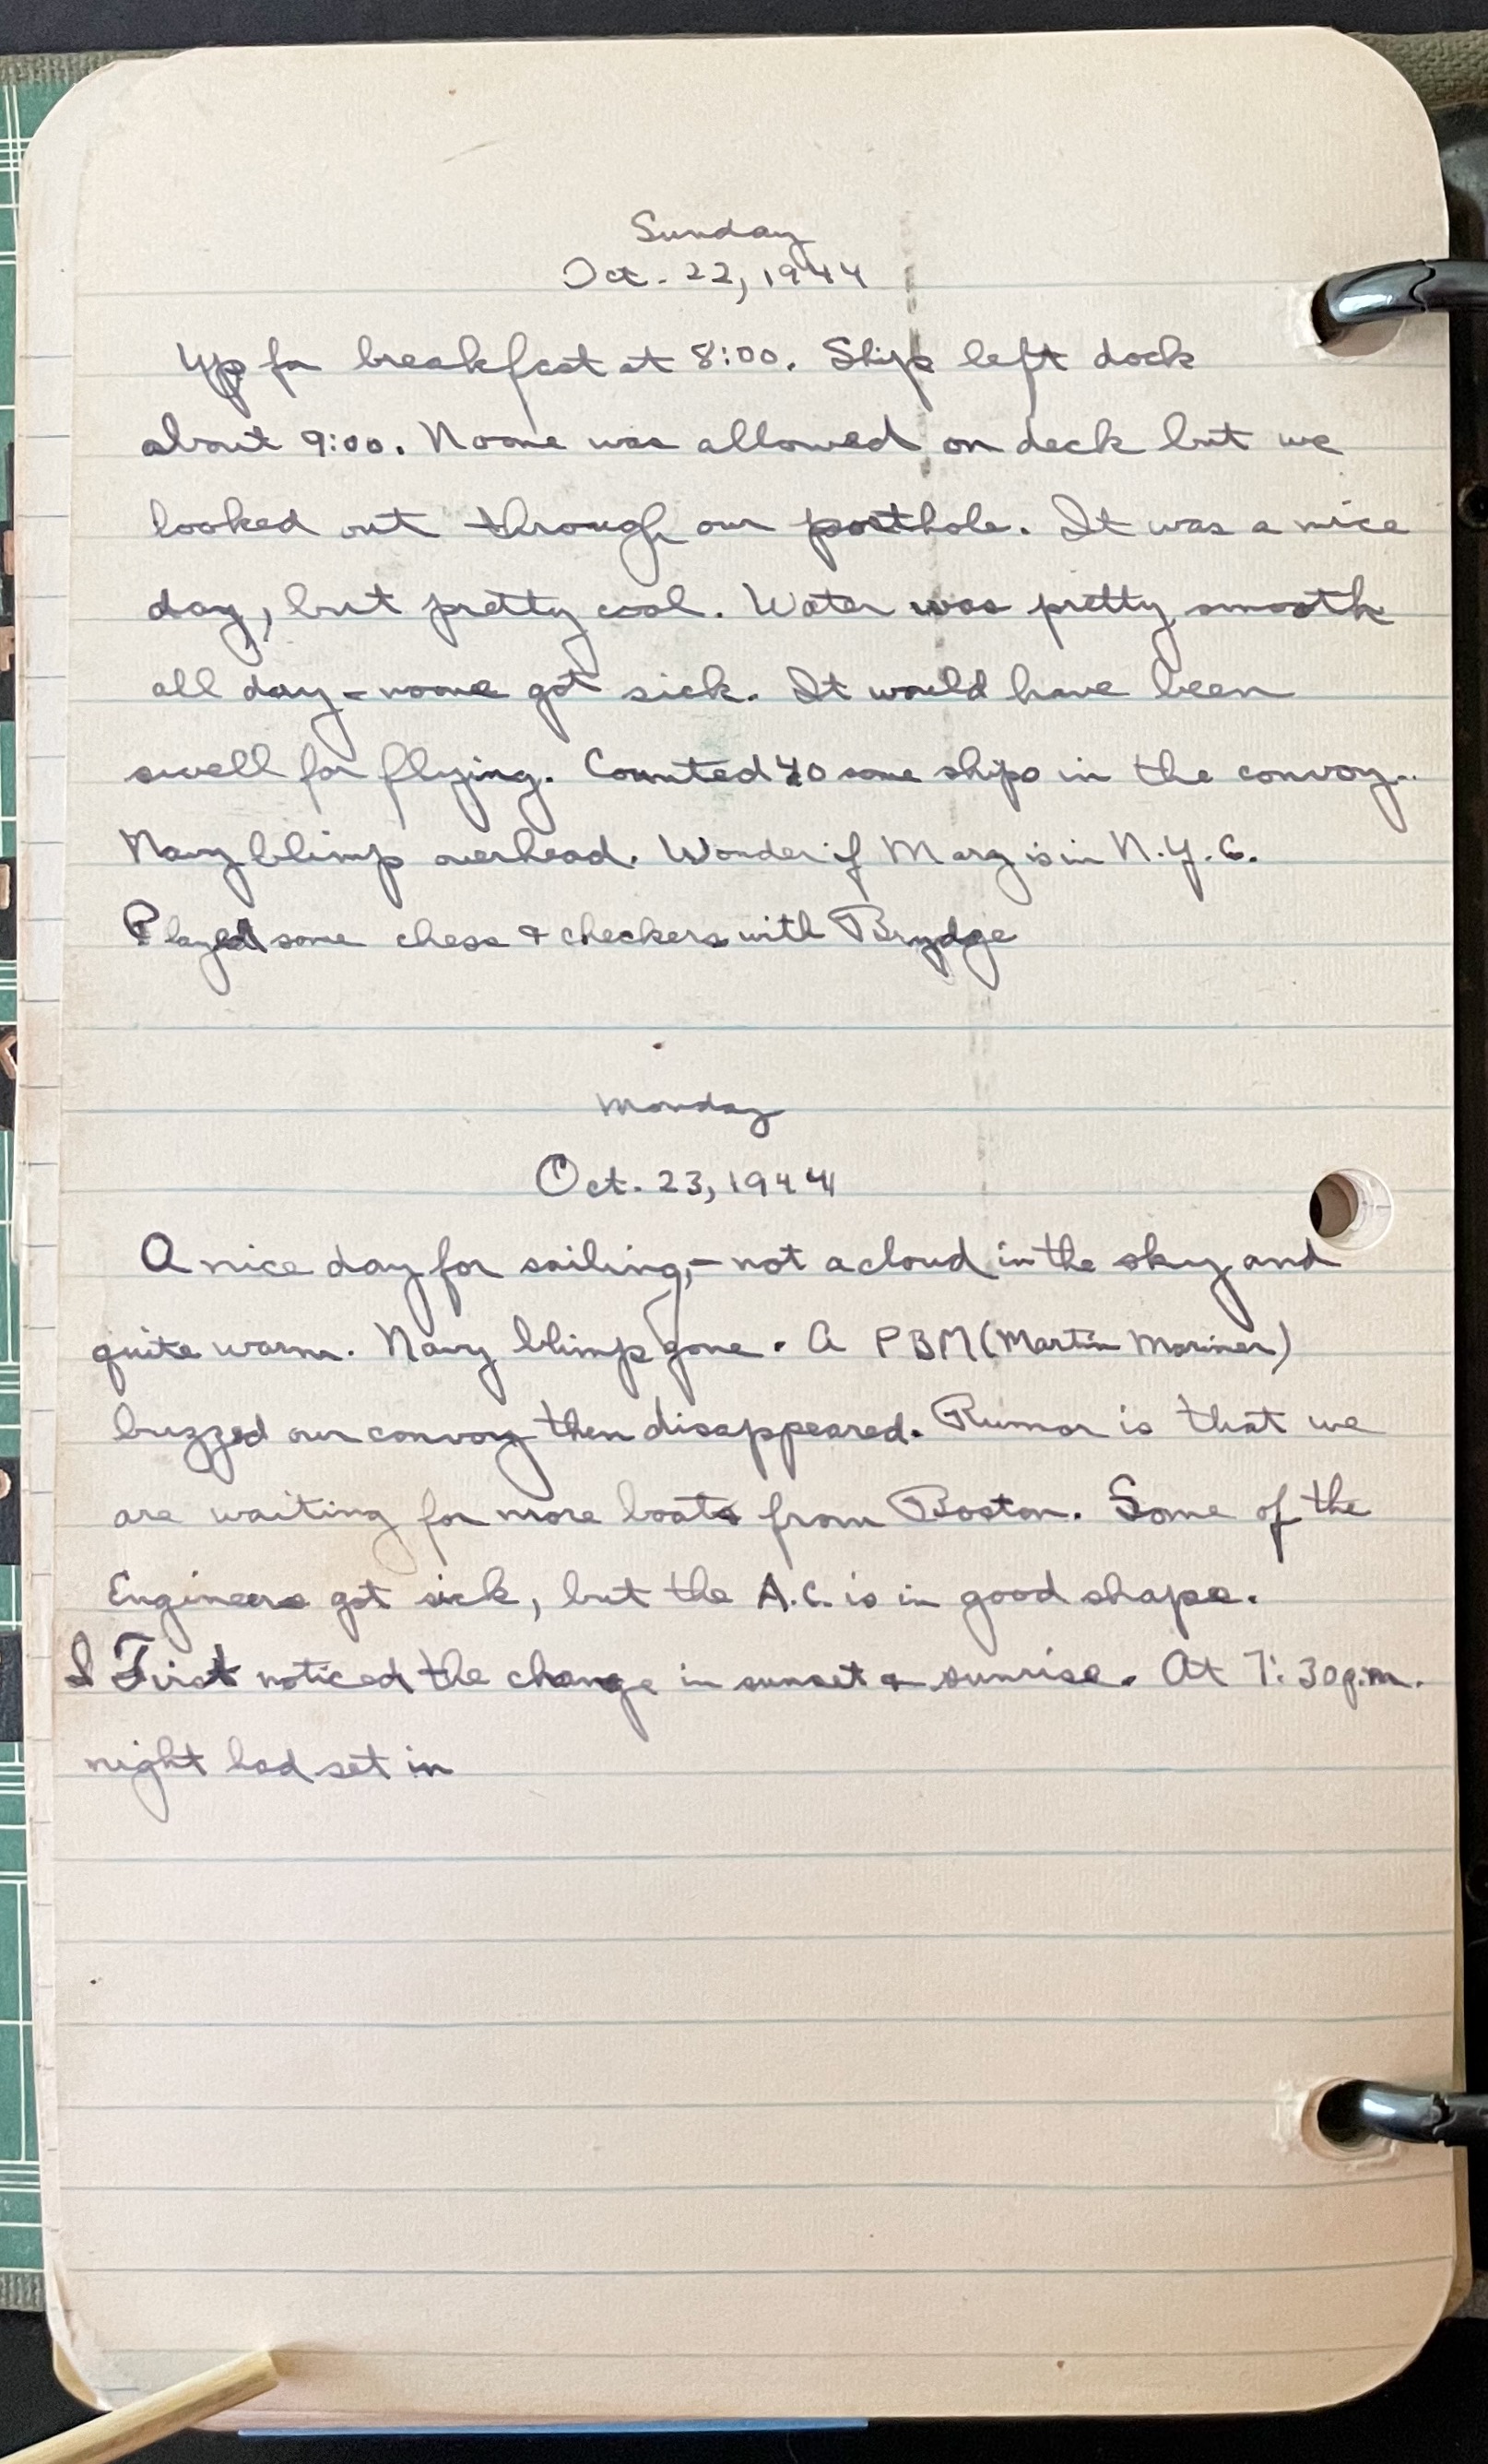 Sunday
Oct. 22, 1944
Up for breakfast at 8:00. Ship left dock
about 9:00. Noone was allowed on deck but we
looked out through our porthole. It was a nice
day, but pretty cool. Water was pretty smooth
all day - noone got sick. It would have been
swell for flying. Counted 40 some ships in the convoy..
Navy blimp overhead. Wonder if Marg is in N.Y.C.
Played some chess & checkers with Brydge
Monday
Oct. 23, 1944
A nice day for sailing, - not a cloud in the sky and
quite warm. Navy blimp gone. A PBM (Martin Mariner)
buzzed our convoy then disappeared. Rumor is that we
are waiting for more boats from Boston. Some of the
Engineers got sick, but the A.C. is in good shape.
I First noticed the change in sunset & sunrise. At 7:30 p.m.
night had set in